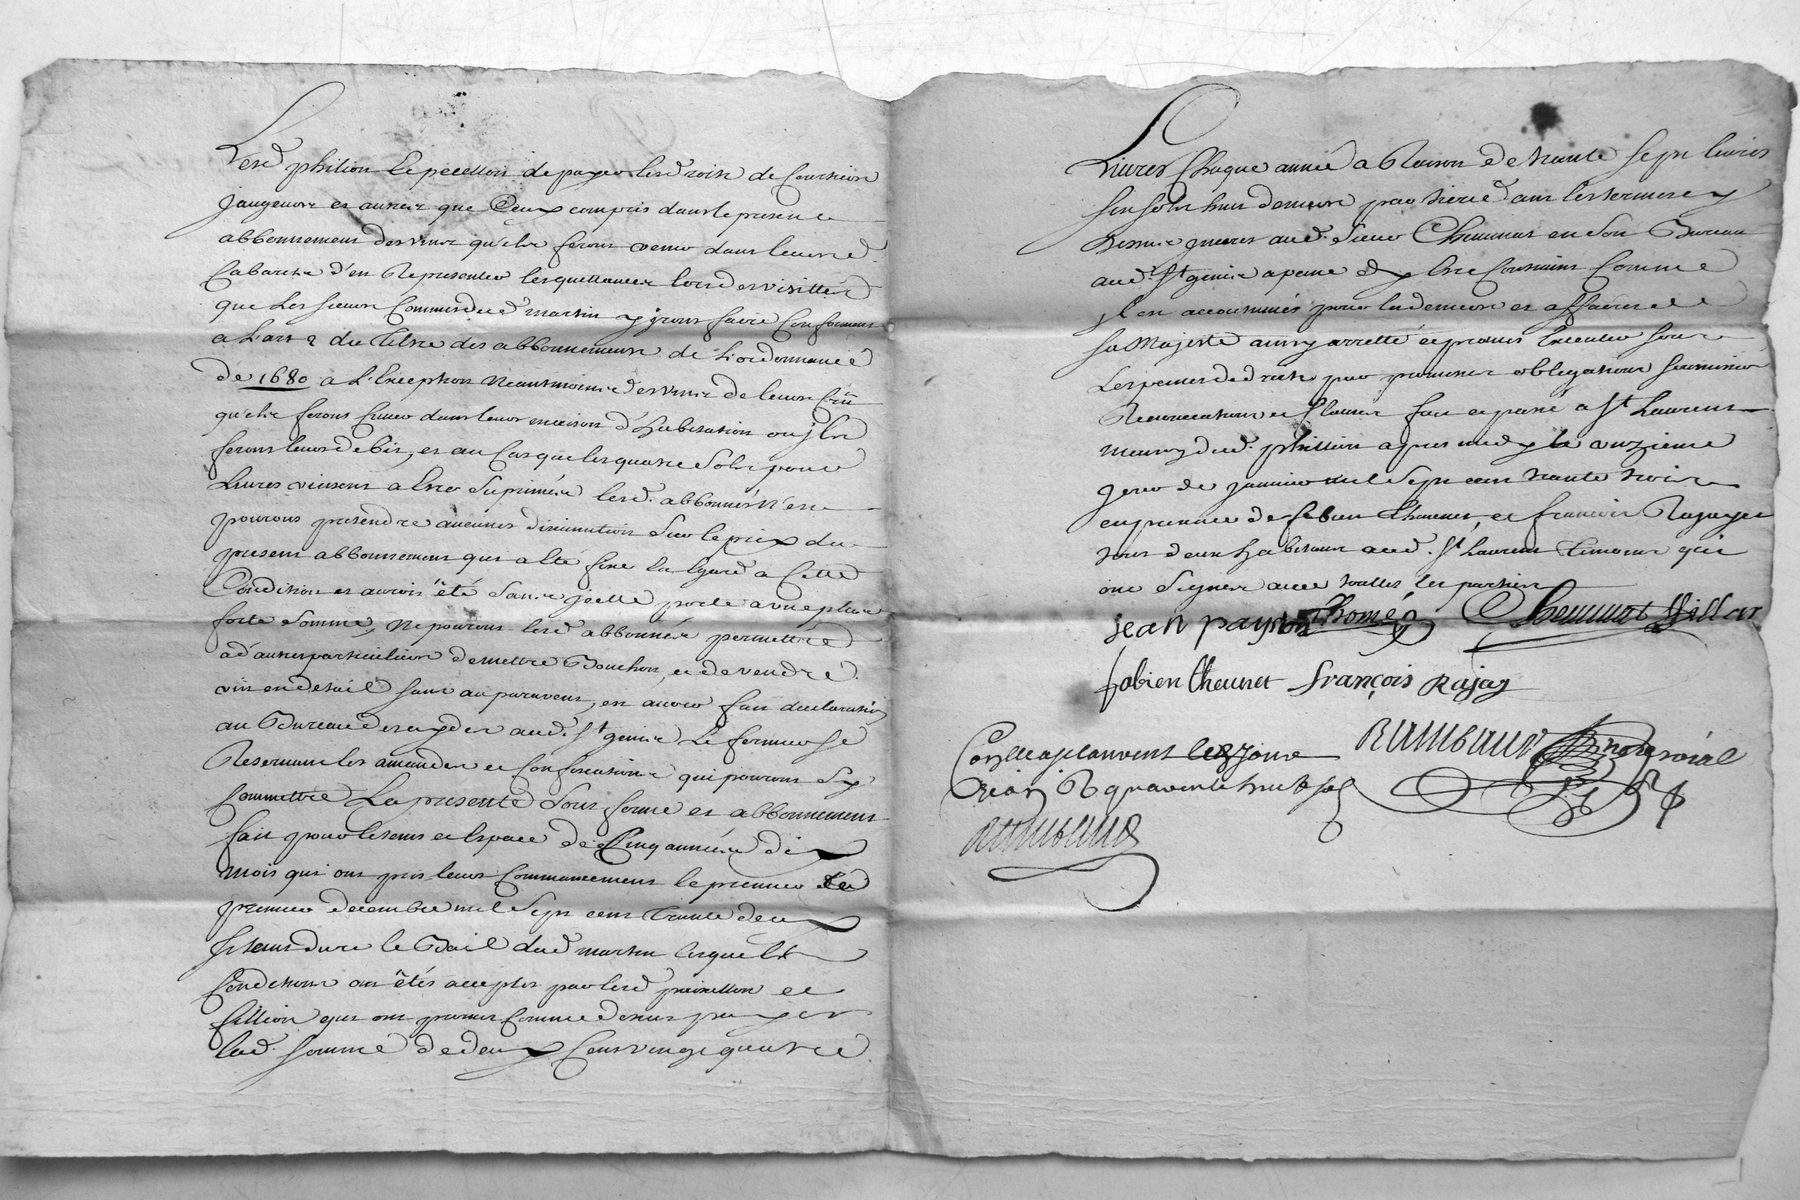 Lesd. philion Le pecellon de payer lesd. droits de Courtiers
jaugeurs et autres que Ceux compris dans le present
abbonnement des vins qu'ils feront venir dans leursd.
Cabarets d'en Representer les quittances lors des visittes
que Les sieurs Commis dud. martin y iront faire Conformement
a L'art 2 du titre des abbonnements de L'ordonnance
de 1680 a L'Exception Neantmoins des vins de leur Crû
qu'ils feront Entrer dans leurs maisons d'habitation ou ils
feront leurs debits, et au Cas que les quatre sols pour
Livres vinsent a Estre Suprimés lesd. abbonnés N'en
pouront pretendre aucunes diminutions Sur le prix du
present abbonnement qui a Eté fixé La Egard a Cette
Condition et auroit êté Sans jcelle porté a une plus
forte Somme, Ne pouront lesd. abbonnés permettre
a d'autres particuliers de mettre Bouchon, et de vendre
vin en detail sans au paravent, en avoir fait declaration
au Bureau des aydes aud. St genis Le fermier se
Reservant les amandes et Confiscations qui pouront s'y
Commettre La presente Sous ferme et abbonnement
fait pour le tems et Espace de Cinq années dix
mois qui ont pris leurs Commancement le premier
premier decembre mil Sept cent trente deux
si tant dure le Bail dud. martin lesquelles
Conditions ont êtés acceptés par lesd. et
fillion qui ont promis Comme dessus payer
lad. somme de deux Cent vingt quatre
Livres Chaque année a Raison de trente sept livres
six sols huit deniers par tierce dans les termes y
dessus aud. Sieur Chemmat en son Bureau
aud. St genis a peine d'y Estre Contraints Comme
il est accoutumés pour les deniers et affaires de
sa Majesté ainsy arretté et promis Executer sous
Les peines de droits par promesses obligations soumissions
Renonciations et Clauses fait et passé a St Laurent
maison dud. phillion apres midy le onzieme
jour de janvier mil Sept cent trente trois
en presence de fabien theunet, et francois Rajay
tous deux habitans aud. St Laurent temoins qui
ont Signés avec toutes les parties
jean payson Thomé Chemmat fillion
fabien theunet françois Rajay
Conlle a St Laurent le 23 Janv
RAMBAUD not royal
1733 R quarente huit sols
RAMBAUD